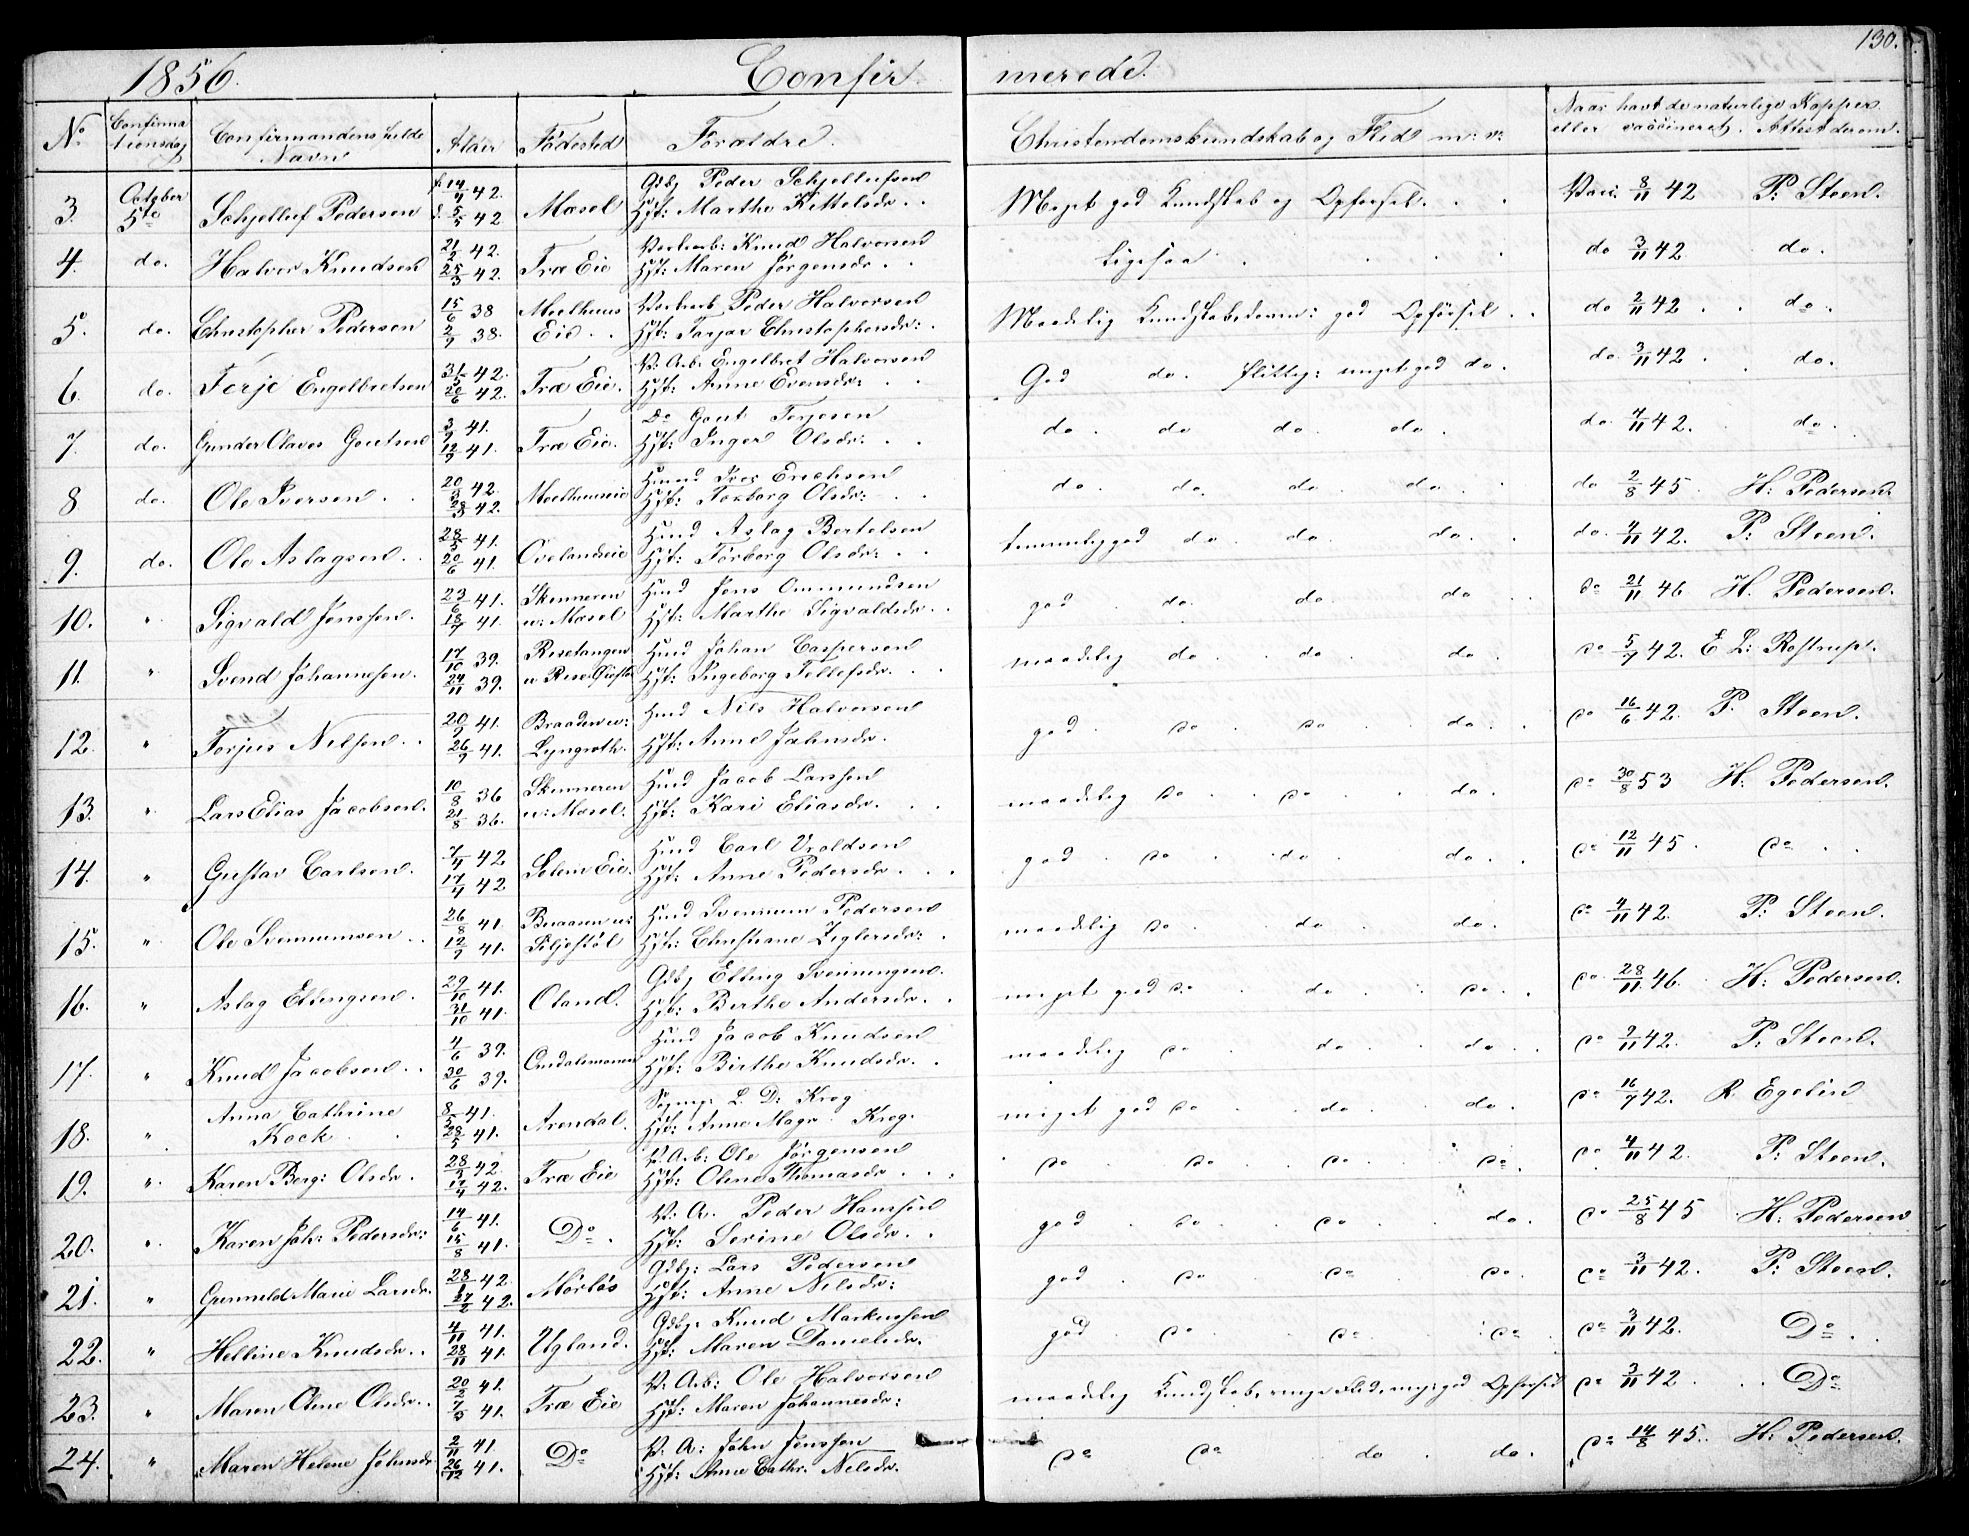 130.
1856. Confir merede.
No. Confirmationsdag Confirmandens fulde Navn Alder Födested Forældre. Christendomskundskab og Flid m: v: Naar havt de naturlige Kopper eller vaccineret. Attest derom.
3. October 5te Schjelluf Pedersen f. 14/4 42. d. 5/5 42 Mæsel Gdbg Peder Schjellufsen Hst: Marthe Kittelsdr. Meget god Kundskab og Opførsel. Vacc. 8/11 42 P: Steen.
4. do. Halvor Knudsen 21/2 42. 25/3 42. Træ Eie Knud Halvorsen Hst: Maren Jörgensdr. Ligesaa do 3/11 42 do.
5. do. Christopher Pedersen 15/6 38 2/7 38. Moelhuus Eie Peder Halvorsen Hst: Tarjar Christophersdr: Maadelig Kundskab god Opförsel do 2/11 42 do.
6 do. Terje Engelbretsen 31/5 42. 26/6 42. Træ Eie. V: Arb. Engelbret Halvorsen Hst: Anne Evensdr. God do. flittig: meget god do. do. 3/11 42 do.
7. do. Gunder Olaves Goutsen 3/9 41. 12/9 41. Træ Eie. Do Gout Terjesen Hst: Inger Olsdr: do. do do. do. do. 4/11 42. do.
8 do. Ole Iversen 20/3 42. 28/3 42. Moelhuuseie Huusd Iver Erichsen Hst: Torborg Olsdr: do. do. do. do. do 2/8 45 H: Pedersen.
9. do. Ole Aslagsen 28/5 41. 20/6 41. Ovelandseie Husd Aslag Bertelsen Hst: Torborg Olsdr: temmelig god do do. do. do. 4/11 42. P: Steen.
10. " Sigvald Jenssen. 23/6 41. 18/7 41. Skinneren u: Mæsel Husd Jens Ommundsen Hst: Marthe Sigvaldsdr. god do. do. do do 21/11 46 H. Pedersen.
11. " Svend Johannesen. 17/10 39. 24/11 39. Risetangen Husd Johan Caspersen Hst: Ingeborg Tellefsdr. maadelig do. do. do. do 5/7 42. E L: Rostrup.
12. " Torjus Nilssen 20/9 41. 26/9 41. Braaden u: Lyngroth. Husd Nils Halvorsen Hst: Anne Jahnsdr. god do do do. do 16/6 42. P. Steen.
13. " Lars Elias Jacobsen. 10/8 36 21/8 36. Skinneren u: Mæsel. Husd Jacob Larssen Hst: Kari Eliasdr. maadelig do do. do. do 30/8 53 H. Pedersen.
14. " Gustav Carlsen. 7/4 42 17/4 42 Solem Eie. Husd Carl Uroldsen Hst: Anne Pedersdr. god do do. do. do 12/11 45. do
15. " Ole Svennumsen 26/8 41. 12/9 41. Braaten u: Siljestöl Husd Svennum Pedersen Hst: Christiane Ziglersdr: maadelig do do. do. do 4/11 42. P: Steen.
16. " Aslag Ellingsen. 29/10 41. 31/10 41. Oland. Gdbg Elling Svenningsen. Hst: Birthe Andersdr. meget god do do do. do. 28/11 46. H: Pedersen.
17. " Knud Jacobsen. 4/6 39. 30/6 39. Omdalsmonen Husd Jacob Knudsen Hst: Birthe Knudsdr. maadelig do do. do. do 2/11 42. P: Steen.
18. " Anna Cathrine Kock 8/3 41. 28/5 41. Arendal. L. D: Krog Hst: Anne Magr. Krog. meget god do do. do. do 16/7 42. R. Egelin
19. " Karen Berg: Olsdr. 28/3 42. 17/4 42. Træ Eie V. Arb: Ole Jörgensen Hst: Olene Thomasdr. do do do do. do 4/11 42. P: Steen.
20. " Karen Joh: Pedersdr: 14/6 41. 15/8 41. Do V. A. Peder Hanssen Hst: Serine Olsdr. god do do do. do 25/8 45 H. Pedersen
21. " Gunneld Marie Larsdr. 28/1 42. 27/2 42. Mörlös Gdbg: Lars Pedersen Hst: Anne Nilsdr: god do do do do 3/11 42. P: Steen.
22. " Helline Knudsdr. 4/11 41. 28/11 41. Ugland. Gdbg. Knud Markussen Hst: Maren Danielsdr. god do do do do 3/11 42. Do
23. " Maren Olene Olsdr. 20/2 41. 7/3 41. Træ Eie V: Arb: Ole Halvorsen Hst: Maren Johannesdr: maadelig Kundskab, ringe Flid, meg: god Opførsel do 3/11 42 Do
24. " Maren Helene Johnsdr 2/11 41. 26/12 41. Do V. A: John Jenssen Hst: Anne Cathr. Nilsdr. do do do do. do 14/8 45. H. Pedersen.